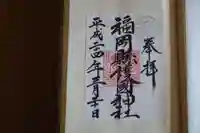 奉拝
福岡縣護國神社
平成二四年三月二十日